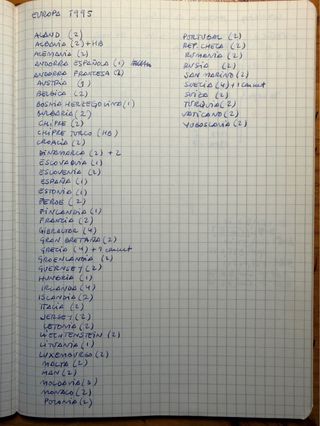 EUROPA 1995
ALAND (2)
ALBANIA (2) + HB
ALEMANIA (2)
ANDORRA ESPAÑOLA (1)
ANDORRA FRANCESA (2)
AUSTRIA (1)
BELGICA (2)
BOSNIA HERZEGOVINA (1)
BULGARIA (2)
CHIPRE (2)
CHIPRE TURCO (HB)
CROACIA (2)
DINAMARCA (2) + 2
ESLOVAQUIA (1)
ESLOVENIA (2)
ESPAÑA (1)
ESTONIA (1)
FEROE (2)
FINLANDIA (1)
FRANCIA (2)
GIBRALTAR (4)
GRAN BRETAÑA (2)
GRECIA (4) + 1 carnet
GROENLANDIA (2)
GUERNSEY (2)
HUNGRIA (1)
IRLANDA (4)
ISLANDIA (2)
ITALIA (2)
JERSEY (2)
LETONIA (2)
LIECHTENSTEIN (2)
LITUANIA (1)
LUXEMBURGO (2)
MALTA (2)
MAN (2)
MOLDAVIA (2)
MONACO (2)
POLONIA (2)
PORTUGAL (2)
REP. CHECA (2)
RUMANIA (2)
RUSIA (2)
SAN MARINO (2)
SUECIA (4) + 1 carnet
SUIZA (2)
TURQUIA (2)
VATICANO (2)
YUGOSLAVIA (2)